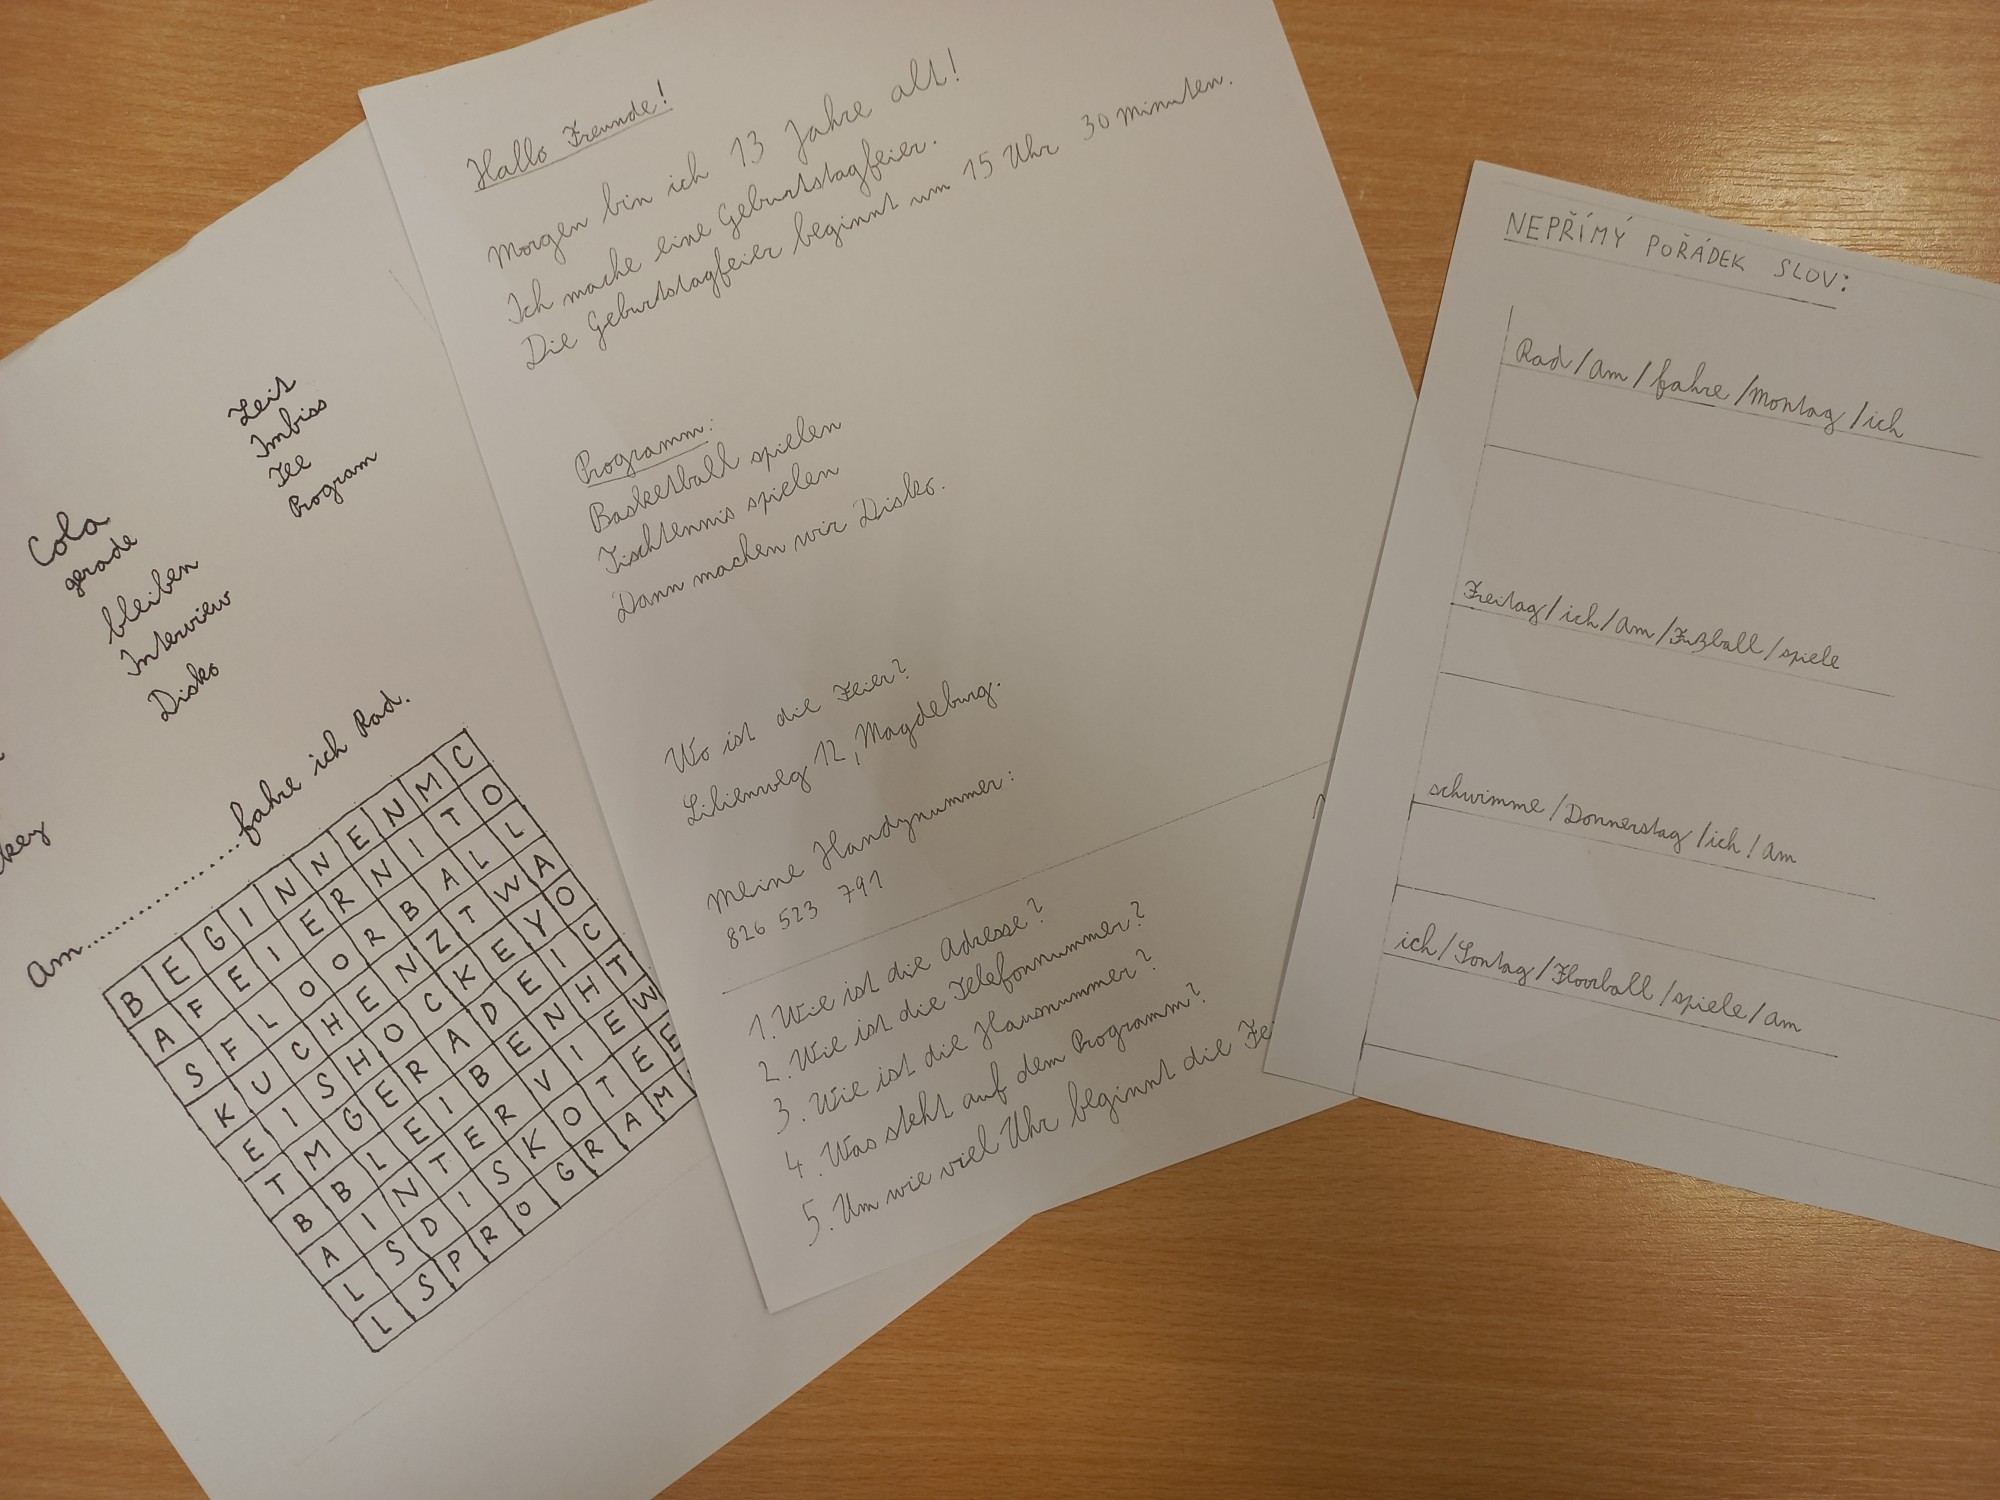 Zeit
Imbiss
Tee
Program
Cola
gerade
bleiben
Interview
Disko
key
Am.....................fahre ich Rad.
B E G I N N E N M C
A F E I E R N I T O
S F L O O R B A L L
K U C H E N Z T W A
E I S H O C K E Y O
T M G E R A D E I C
B B L E I B E N H T
A I N T E R V I E W
L S D I S K O T E E
L S P R O G R A M
Hallo Freunde!
Morgen bin ich 13 Jahre alt!
Ich mache eine Geburtstagfeier.
Die Geburtstagfeier beginnt um 15 Uhr 30 Minuten.
Programm:
Basketball spielen
Tischtennis spielen
Dann machen wir Disko.
Wo ist die Feier?
Lilienweg 12, Magdeburg.
Meine Handynummer:
826 523 791
1. Wie ist die Adresse?
2. Wie ist die Telefonnummer?
3. Wie ist die Hausnummer?
4. Was steht auf dem Programm?
5. Um wie viel Uhr beginnt die Fe
NEPŘÍMÝ POŘÁDEK SLOV:
Rad/am/fahre/Montag/ich
Freitag/ich/am/Fußball/spiele
schwimme/Donnerstag/ich/am
ich/Sontag/Floorball/spiele/am